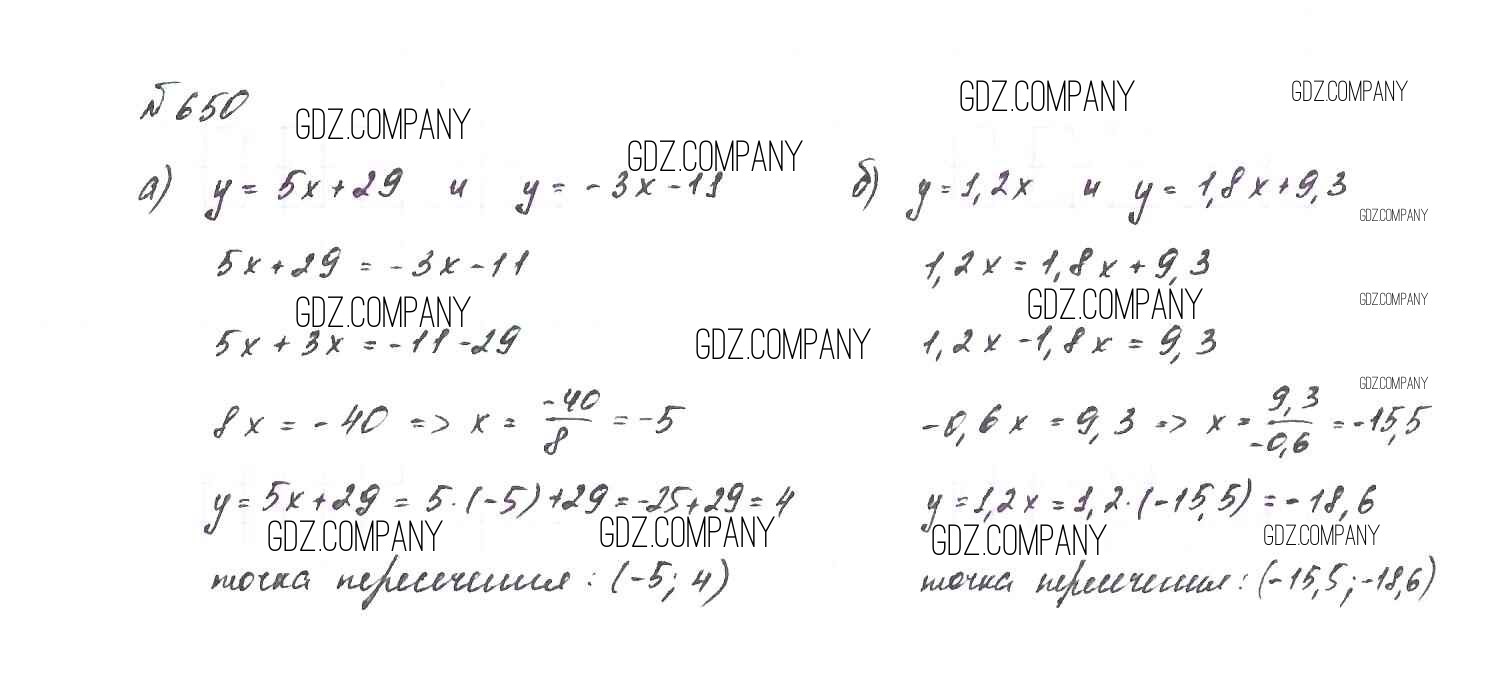 № 650
а) y = 5x + 29 и y = - 3x - 11
5x + 29 = - 3x - 11
5x + 3x = - 11 - 29
8x = - 40 => x = -40/8 = -5
y = 5x + 29 = 5·(-5) + 29 = -25 + 29 = 4
точка пересечения: (-5; 4)
б) y = 1,2x и y = 1,8x + 9,3
1,2x = 1,8x + 9,3
1,2x - 1,8x = 9,3
-0,6x = 9,3 => x = 9,3/-0,6 = -15,5
y = 1,2x = 1,2·(-15,5) = - 18,6
точка пересечения: (-15,5; -18,6)
GDZ.COMPANY
GDZ.COMPANY
GDZ.COMPANY
GDZ.COMPANY
GDZ.COMPANY
GDZ.COMPANY
GDZ.COMPANY
GDZ.COMPANY
GDZ.COMPANY
GDZ.COMPANY
GDZ.COMPANY
GDZ.COMPANY
GDZ.COMPANY
GDZ.COMPANY